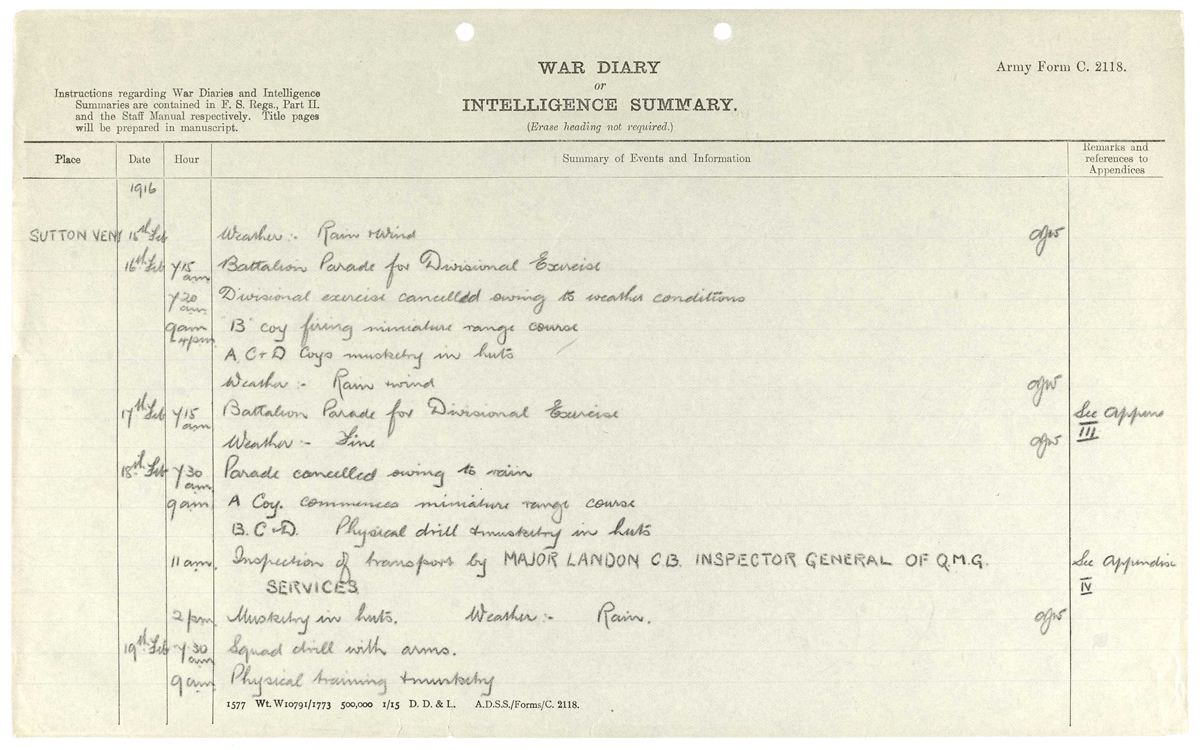 WAR DIARY
or
INTELLIGENCE SUMMARY.
(Erase heading not required.)
Army Form C. 2118.
Instructions regarding War Diaries and Intelligence
Summaries are contained in F. S. Regs., Part II.
and the Staff Manual respectively. Title pages
will be prepared in manuscript.
Place Date Hour Summary of Events and Information Remarks and references to Appendices
1916
SUTTON VENY 15th Feb Weather :- Rain & Wind
16th Feb 7 15 am Battalion Parade for Divisional Exercise
7 20 am Divisional exercise cancelled owing to weather conditions
9am 4pm "B" coy firing miniature range course
A, C & D Coys musketry in huts
Weather :- Rain & wind
17th Feb 7 15 am Battalion Parade for Divisional Exercise See Appen III
Weather :- Fine
18th Feb 7 30 am Parade cancelled owing to rain
9am A Coy. commences miniature range course
B. C & D. Physical drill & musketry in huts
11am. Inspection of transport by MAJOR LANDON C.B. INSPECTOR GENERAL OF Q.M.G. See Appendix IV
SERVICES
2pm. Musketry in huts. Weather :- Rain.
19th Feb 7 30 am Squad drill with arms.
9am Physical training & musketry
1577 Wt. W10791/1773 500,000 1/15 D. D. & L. A.D.S.S./Forms/C. 2118.